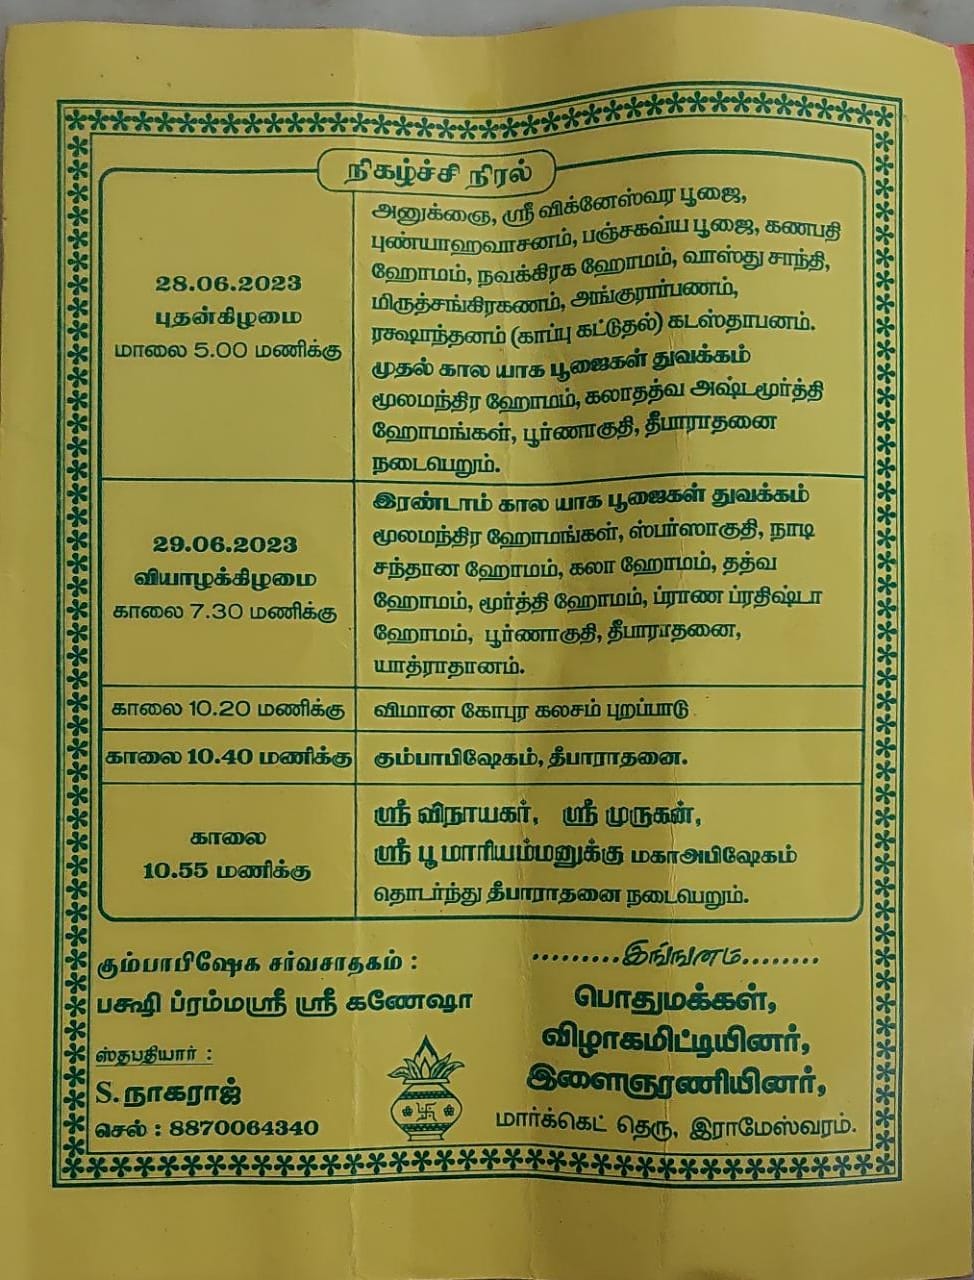 நிகழ்ச்சி நிரல்
28.06.2023
புதன்கிழமை
மாலை 5.00 மணிக்கு
அனுக்ஞை, ஸ்ரீ விக்னேஸ்வர பூஜை,
புண்யாஹவாசனம், பஞ்சகவ்ய பூஜை, கணபதி
ஹோமம், நவக்கிரக ஹோமம், வாஸ்து சாந்தி,
மிருத்சங்கிரகணம், அங்குரார்பணம்,
ரக்ஷாந்தனம் (காப்பு கட்டுதல்) கடஸ்தாபனம்.
முதல் கால யாக பூஜைகள் துவக்கம்
மூலமந்திர ஹோமம், கலாதத்வ அஷ்டமூர்த்தி
ஹோமங்கள், பூர்ணாகுதி, தீபாராதனை
நடைபெறும்.
29.06.2023
வியாழக்கிழமை
காலை 7.30 மணிக்கு
இரண்டாம் கால யாக பூஜைகள் துவக்கம்
மூலமந்திர ஹோமங்கள், ஸ்பர்ஸாகுதி, நாடி
சந்தான ஹோமம், கலா ஹோமம், தத்வ
ஹோமம், மூர்த்தி ஹோமம், ப்ராண ப்ரதிஷ்டா
ஹோமம், பூர்ணாகுதி, தீபாராதனை,
யாத்ராதானம்.
காலை 10.20 மணிக்கு விமான கோபுர கலசம் புறப்பாடு
காலை 10.40 மணிக்கு கும்பாபிஷேகம், தீபாராதனை.
காலை
10.55 மணிக்கு
ஸ்ரீ விநாயகர், ஸ்ரீ முருகன்,
ஸ்ரீ பூ மாரியம்மனுக்கு மகாஅபிஷேகம்
தொடர்ந்து தீபாராதனை நடைபெறும்.
கும்பாபிஷேக சர்வசாதகம் :
பக்ஷி ப்ரம்மஸ்ரீ ஸ்ரீ கணேஷா
ஸ்தபதியார் :
S. நாகராஜ்
செல் : 8870064340
.........இங்ஙனம்........
பொதுமக்கள்,
விழாகமிட்டியினர்,
இளைஞரணியினர்,
மார்க்கெட் தெரு, இராமேஸ்வரம்.